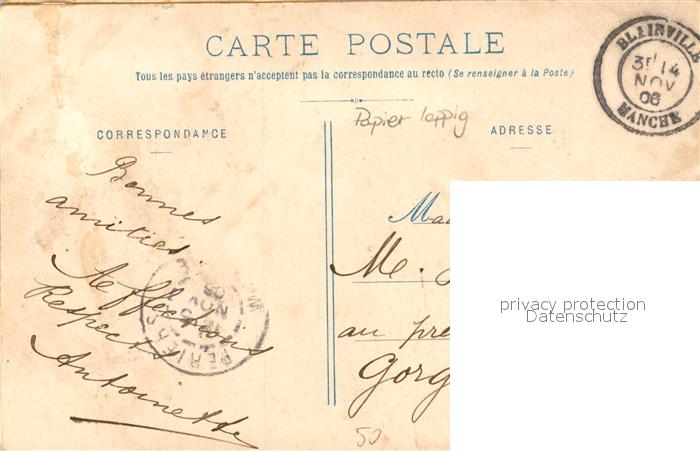 CARTE POSTALE
Tous les pays étrangers n'acceptent pas la correspondance au recto (Se renseigner à la Poste)
BLAINVILLE
3E 14
NOV
06
MANCHE
Papier lappig
CORRESPONDANCE
ADRESSE
Bonnes
amitiés
Affections
Respects
Antoinette
PERIERS
NOV
Ma
Me.
au pre
Gorg
privacy protection
Datenschutz
50